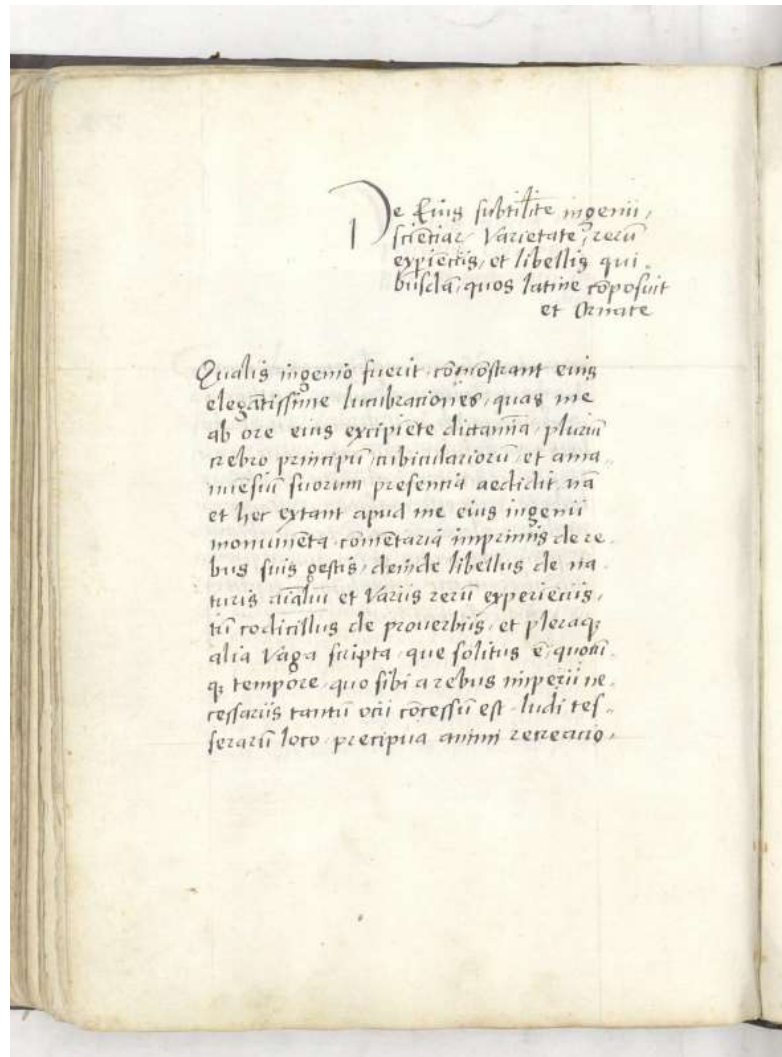 De Eius subtilite ingenii,
scientiar Varietate, rerū
expiēciis, et libellis qui
busdā, quos latine cōposuit
et Ornate
Qualis ingenio fuerit cōmōstrant eius
elegātissime lucubrationes, quas me
ab ore eius excipiēte dictamīa, pluriū
crebro principū, cubiculariorū, et ama
nuēsiū suorum presencia aedidit, nā
et hec extant apud me eius ingenii
monumēta, comētaria imprimis de re
bus suis gestis, deīde libellus de na
turis aīaliū et Variis rerū experiēciis,
tū codicillus de proverbiis, et pleraq;
alia Vaga scripta, que solitus ē, quocū
q; tempore, quo sibi a rebus imperii ne
cessariis tantū ocii cōcessū est, ludi tes
serarū loco, precipua animi recreacio,